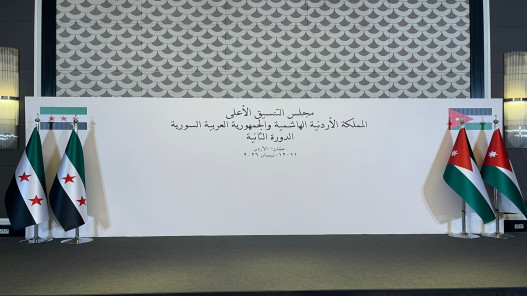 مجلس التنسيق الأعلى
المملكة الأردنية الهاشمية والجمهورية العربية السورية
الدورة الثانية
عمّان - الأردن
١١-١٢ نيسان ٢٠٢٦